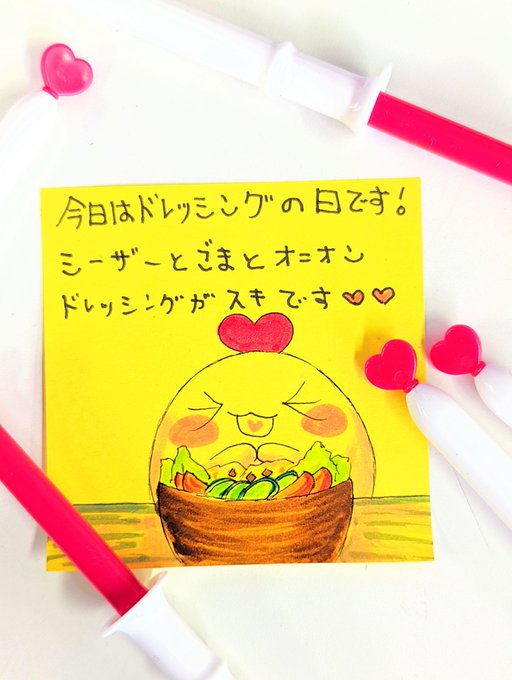 今日はドレッシングの日です！
シーザーとごまとオニオン
ドレッシングがスキです♥♥